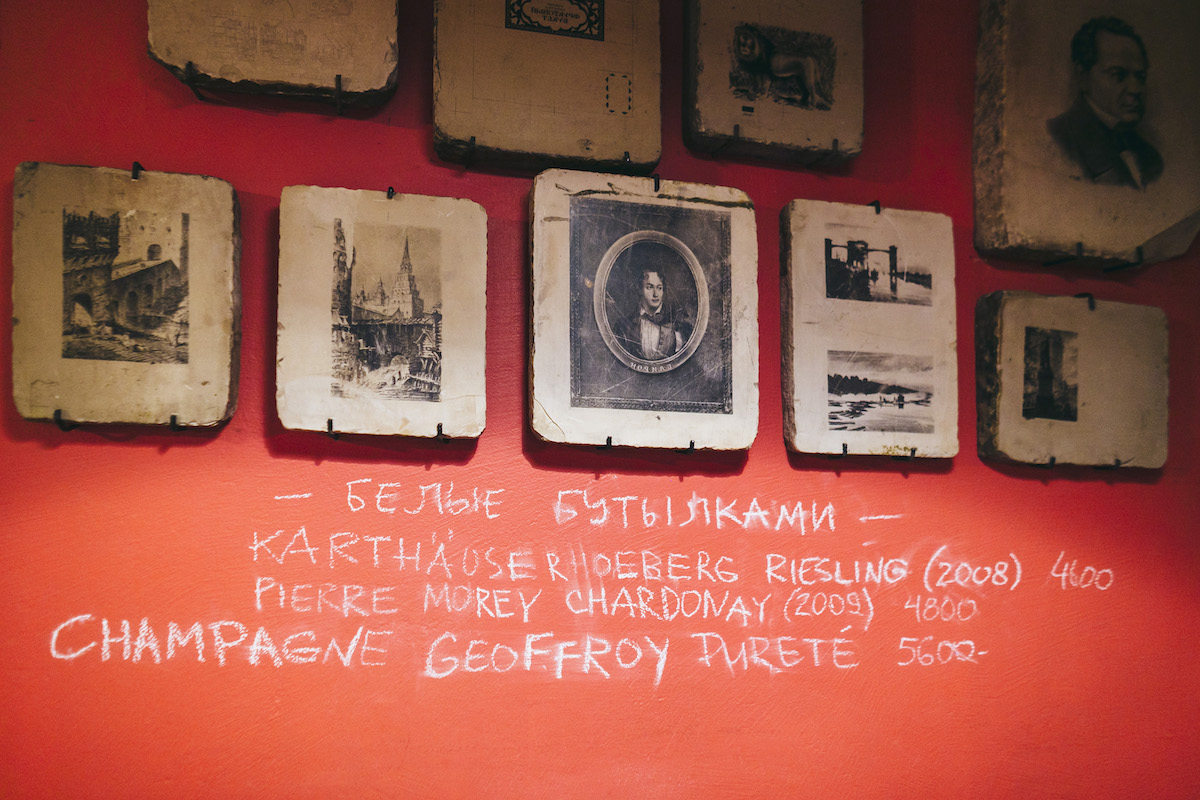 — БЕЛЫЕ БУТЫЛКАМИ —
KARTHÄUSERHOEBERG RIESLING (2008) 4600
PIERRE MOREY CHARDONAY (2009) 4800
CHAMPAGNE GEOFFROY PURETÉ 5600-